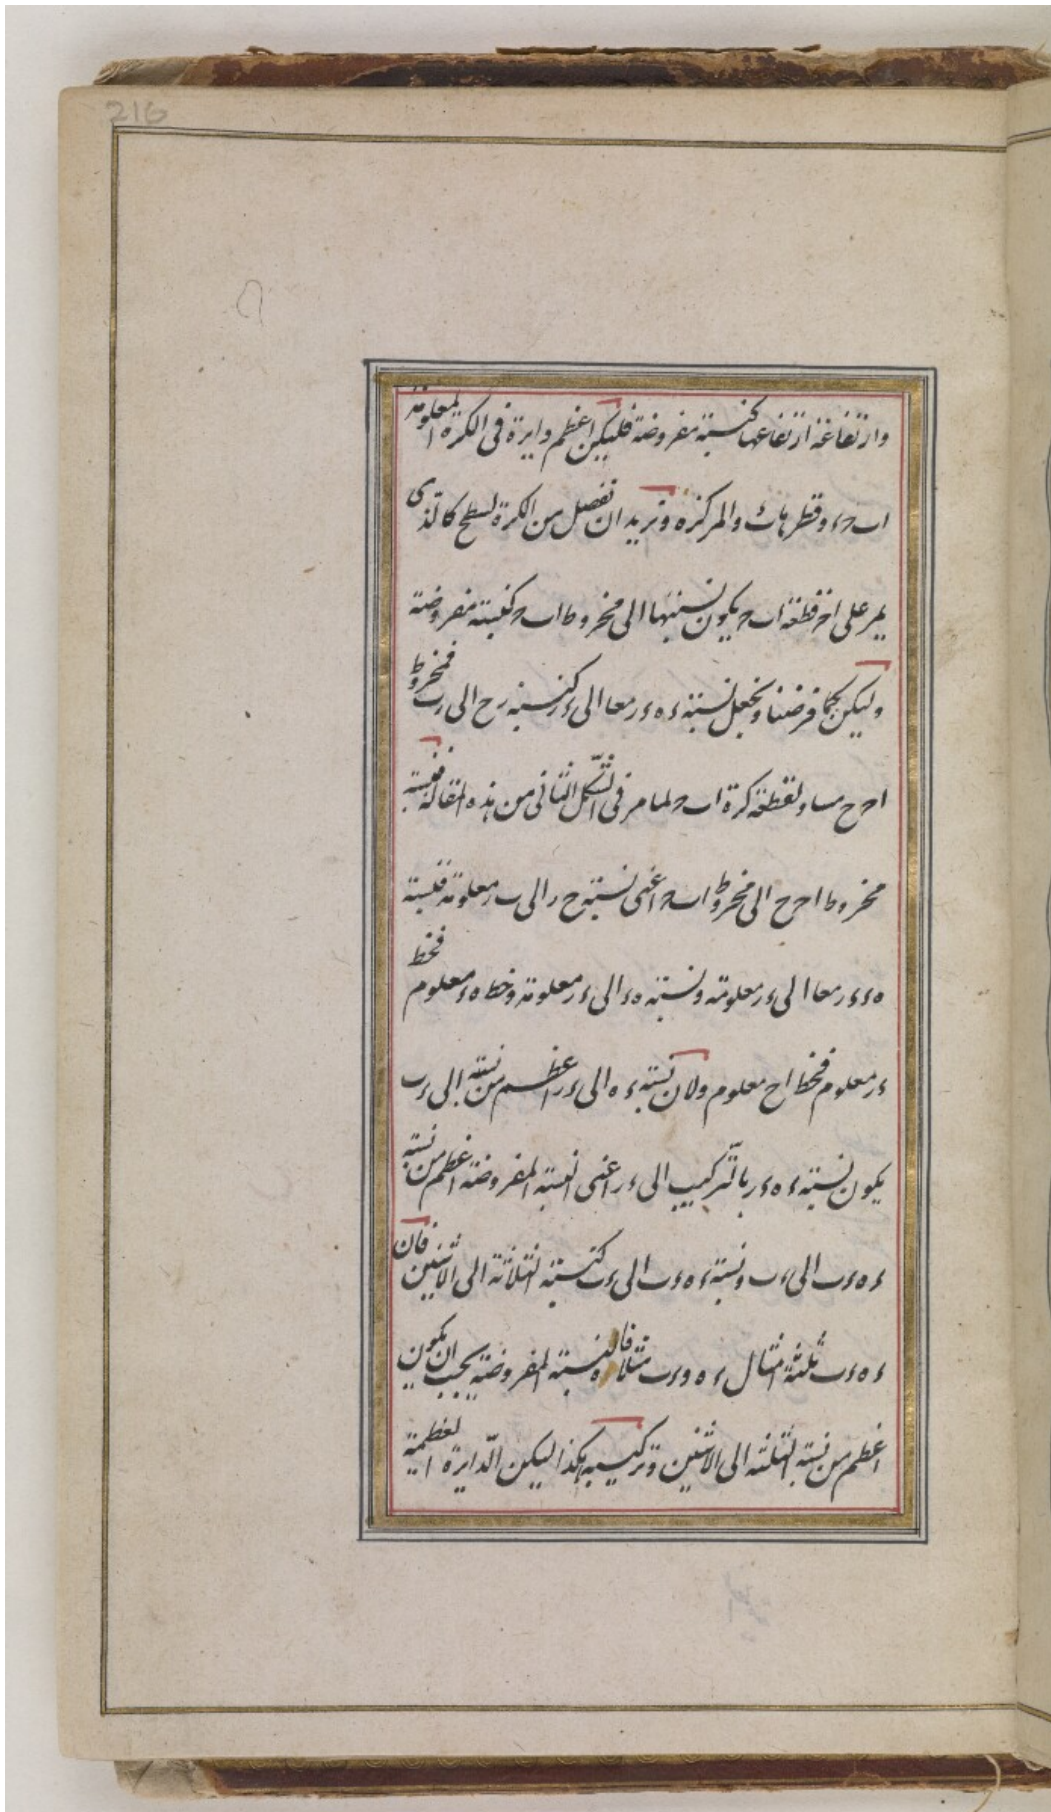 216
وارتفاعه ارتفاعها كنسبة مفروضة فليكن اعظم دايرة فى الكرة المعلومة
اب‍ح‍ء وقطرها ب‍ء والمركز ه ونريد ان نفصل من الكرة بسطح كالذى
يمر على اح قطعة اب‍ح يكون نسبتها الى مخروط اب‍ح كنسبة مفروضة
وليكن كما فرضنا ونجعل نسبة ء ه ء ر معا الى ء ر كنسبة ر ح الى ر ب فمخروط
ا ح ح مساو لقطعة كرة اب‍ح لما مر فى الشكل الثانى من هذه المقالة فنسبة
مخروط ا ح ح الى مخروط اب‍ح اعنى نسبة ح ر الى ب ر معلومة فنسبة
ه ء ء ر معا الى ء ر معلومة ونسبة ه ء الى ء ر معلومة وخط ه ء معلوم فخط
ء ر معلوم فخط اح معلوم ولان نسبة ء ه الى ء ر اعظم من نسبته الى ء ب
يكون نسبة ء ه ء ر بالتركيب الى ء ر اعنى النسبة المفروضة اعظم من نسبة
ء ه ء ب الى ء ب ونسبة ء ه ء ب الى ء ب كنسبة الثلاثة الى الاثنين فان
ء ه ء ب ثلثة امثال ء ه و ء ب مثلاه فالنسبة المفروضة يجب ان يكون
اعظم من نسبة الثلثة الى الاثنين وتركيبه هكذا ليكن الدايرة العظيمة